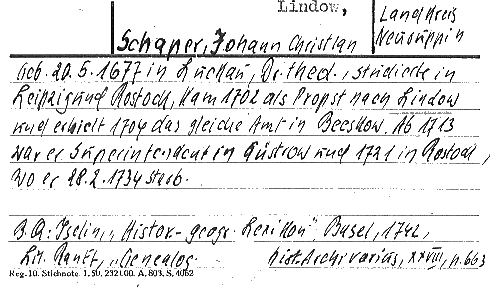 Lindow,
Landkreis
Neuruppin
Schaper, Johann Christian
Geb. 20.5.1677 in Luckau, Dr. theol., studierte in
Leipzig und Rostock, kam 1702 als Propst nach Lindow
und erhielt 1704 das gleiche Amt in Beeskow. Ab 1713
war er Superintendent in Güstrow und 1721 in Rostock,
wo er 28.2.1734 starb.
B.A: Iselin, „Histor.-geogr. Lexikon", Basel, 1742,
Lit. Ranft, „Genealog. hist. Archivarius, XXVIII, p. 663
Reg-10. Stichnote. 1.50. 2321.00. A. 803. S. 4062